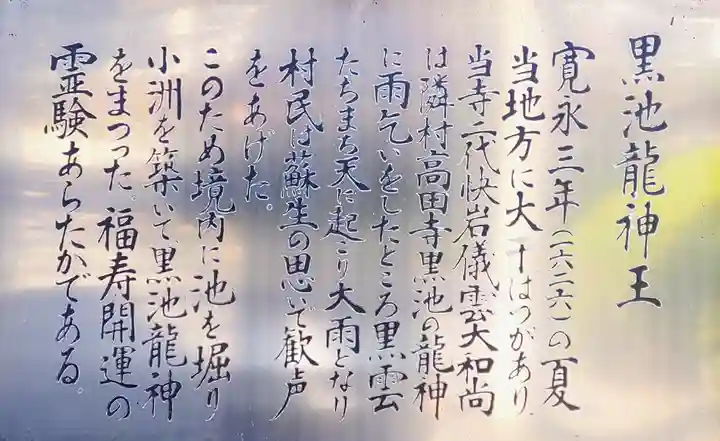 黒池龍神王
寛永三年(一六二六)の夏
当地方に大干はつがあり
当寺二代快岩儀雲大和尚
は隣村高田寺黒池の龍神
に雨乞いをしたところ黒雲
たちまち天に起こり大雨となり
村民は蘇生の思いで歓声
をあげた。
このため境内に池を堀り
小洲を築いて黒池龍神
をまつった。福寿開運の
霊験あらたかである。